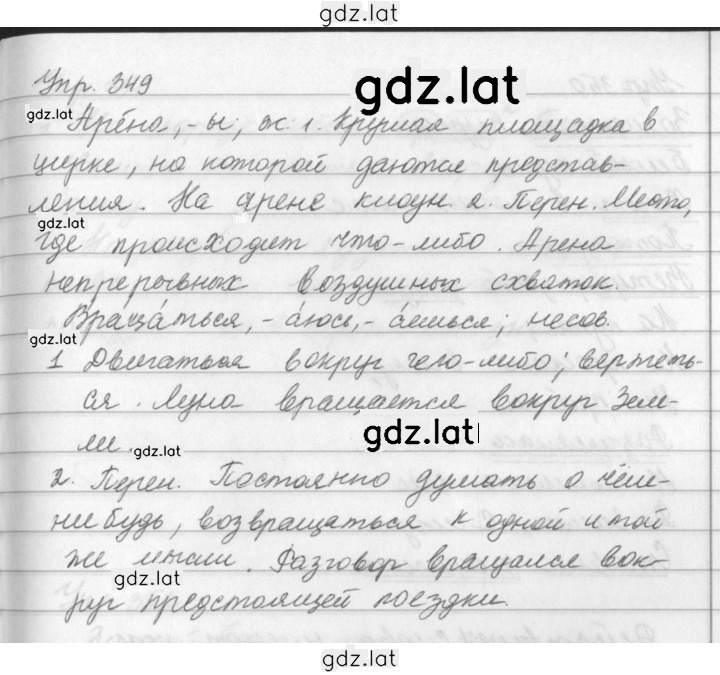 gdz.lat
Упр. 349
gdz.lat
gdz.lat
Арéна, -ы, ж. 1. Круглая площадка в
цирке, на которой даются представ-
ления. На арене клоун 2. Перен. Место,
gdz.lat
где происходит что-либо. Арена
непрерывных воздушных схваток.
Вращáться, -áюсь, -áешься; несов.
gdz.lat
1 Двигаться вокруг чего-либо; вертеть-
ся. Луна вращается вокруг Зем-
ли.
gdz.lat
gdz.lat
2. Перен. Постоянно думать о чём-
нибудь, возвращаться к одной и той
же мысли. Разговор вращался вок-
gdz.lat
руг предстоящей поездки.
gdz.lat